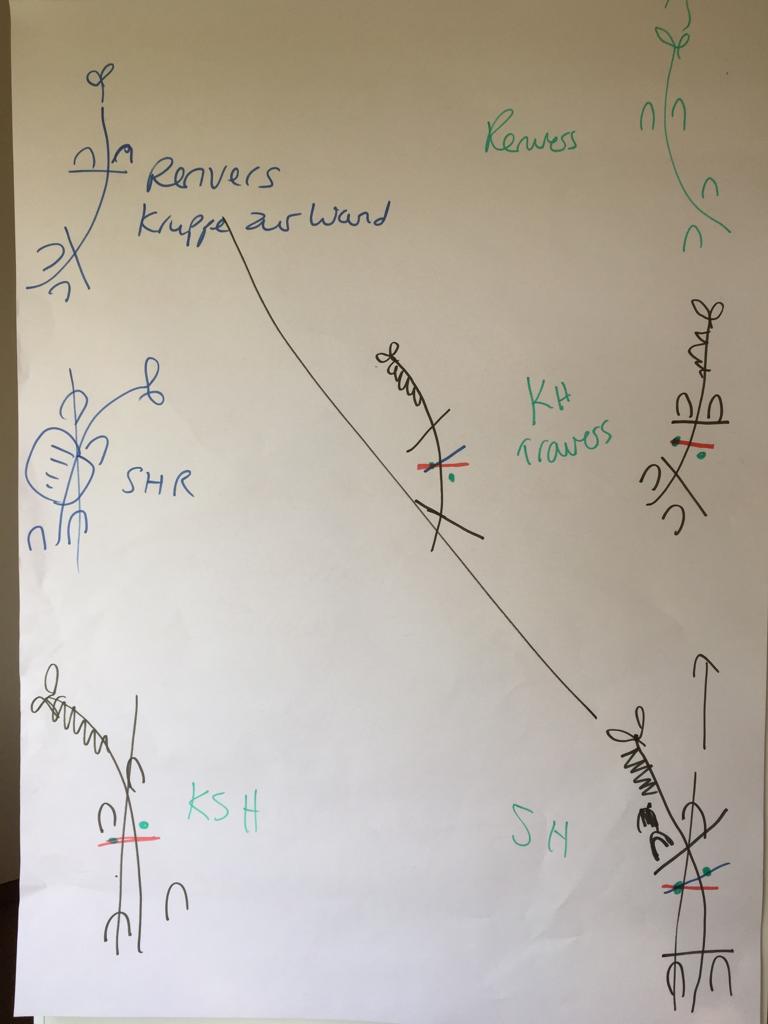 Renvers
Renvers
Kruppe zur Wand
KH
Travers
SHR
KSH
SH